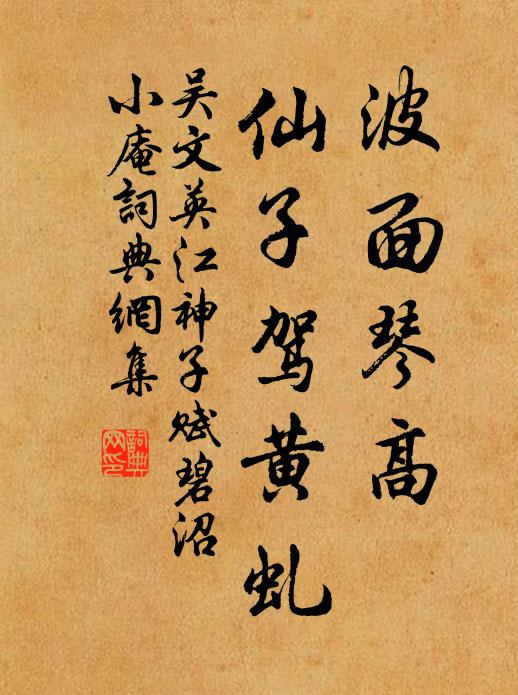 波面琴高
仙子驾黄虬
吴文英江神子赋碧沼
小庵詞典網集
詞典網印